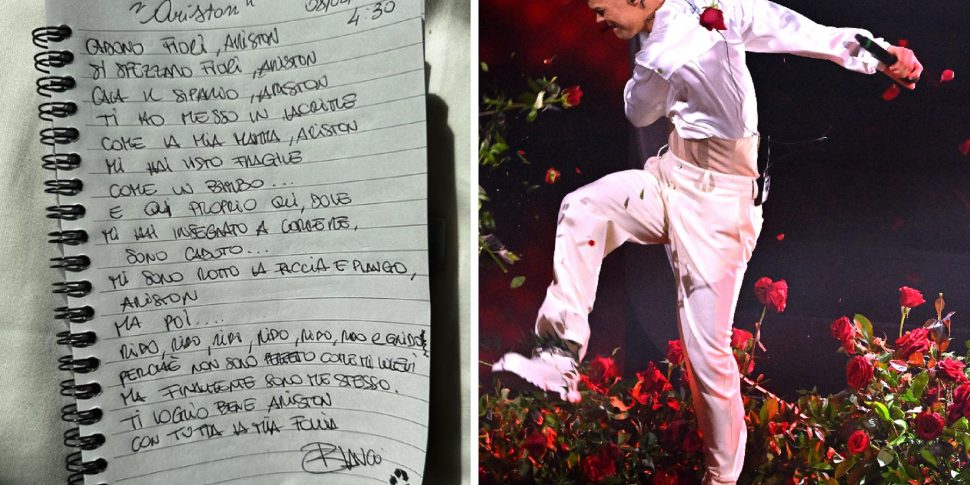 "Ariston"
4:30
CADONO FIORI, ARISTON
SI SPEZZANO FIORI, ARISTON
CALA IL SIPARIO, ARISTON
TI HO MESSO IN LACRIME
COME LA MIA MAMMA, ARISTON
MI HAI VISTO FRAGILE
COME UN BIMBO...
E QUI PROPRIO QUI, DOVE
MI HAI INSEGNATO A CORRERE,
SONO CADUTO...
MI SONO ROTTO LA FACCIA E PIANGO,
ARISTON
MA POI....
RIDO, RIDO, RIDO, RIDO, RIDO, RIDO E GRIDO
PERCHÈ NON SONO PERFETTO COME MI VOLEVI
MA FINALMENTE SONO ME STESSO.
TI VOGLIO BENE ARISTON
CON TUTTA LA MIA FOLLIA
BLANCO